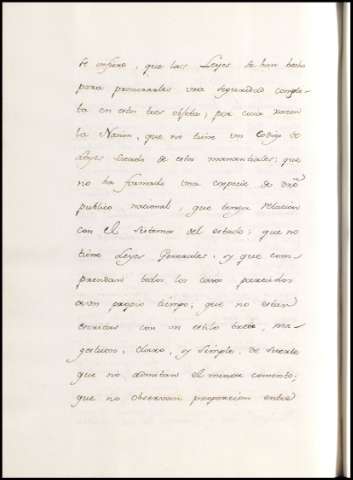 se infiere, que las Leyes se han hecho
para procurarles una seguridad comple-
ta en estos tres objetos; por cuia razon
la Nacion, que no tiene un Codigo de
Leyes sacado de estos manantiales; que
no ha formado una especie de dro
publico nacional, que tenga relacion
con el sistema del estado; que no
tiene Leyes Generales, y que com-
prendan todos los casos parecidos
a un propio tiempo; que no estan
escritas con un estilo breve, ma-
gestuoso, claro, y simple, de suerte
que no admitan el menor comento;
que no observan proporcion entre